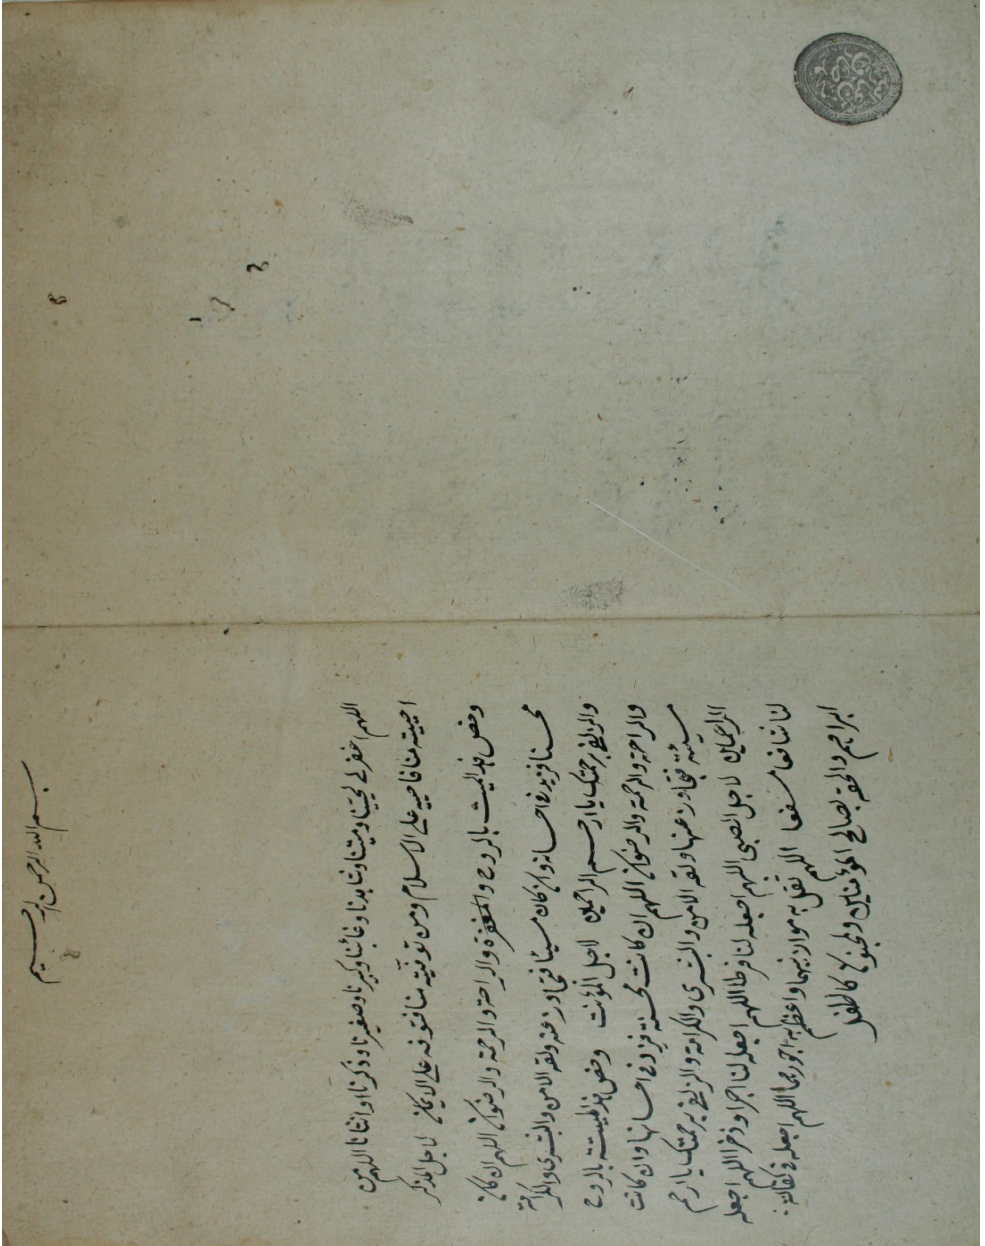 بسم الله الرحمن الرحيم
اللهم اغفر لحينا وميتنا وشاهدنا وغائبنا وكبيرنا وصغيرنا وذكرنا وانثانا اللهم من
احييته منا فاحيه على الاسلام ومن توفيته منا فتوفه على الايمان لاجل المذكر
وخص هذ الميت بالروح والمغفرة والراحة والرحمة والرضوان اللهم ان كان
محسنا فزد في احسانه وان كان مسيئا فتجاوز عنه ولقه الامن والبشرى والكرامة
والزلفى برحمتك يا ارحم الراحمين لاجل المؤنث وخص هذ الميتة بالروح
والراحة والرحمة والرضوان اللهم ان كانت محسنة فزد في احسانها وان كانت
مسيئة فتجاوز عنها ولقه الامن والبشرى والكرامة والزلفى برحمتك يا ارحم
الراحمين لاجل الصبى اللهم اجعله لنا فرطا اللهم اجعله لنا اجرا وذخرا اللهم اجعله
لنا شافعا مشفعا اللهم ثقل به موازينهما واعظم به اجورهما اللهم اجعله في كفالة
ابراهيم والحقه بصالح المؤمنين والمجنون كالطفل